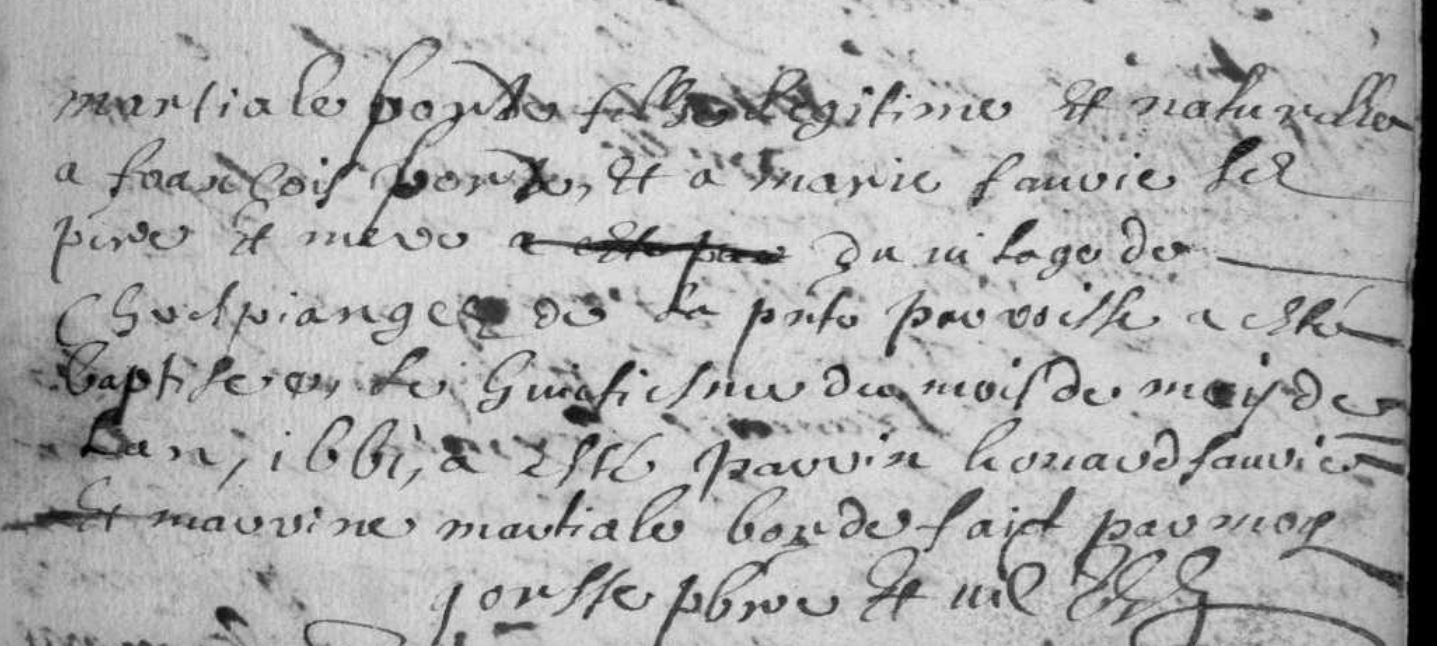 martiale porte fille legitime et naturelle
a francois porte, et a marie fauvie ses
pere et mere a du vilage de
de la pnte parroisse a esté
baptisee le huictiesme du mois de may de
lan, 1661, a esté parrin lionard fauvie
et marrine martiale borde faict par moy
pbre et vic